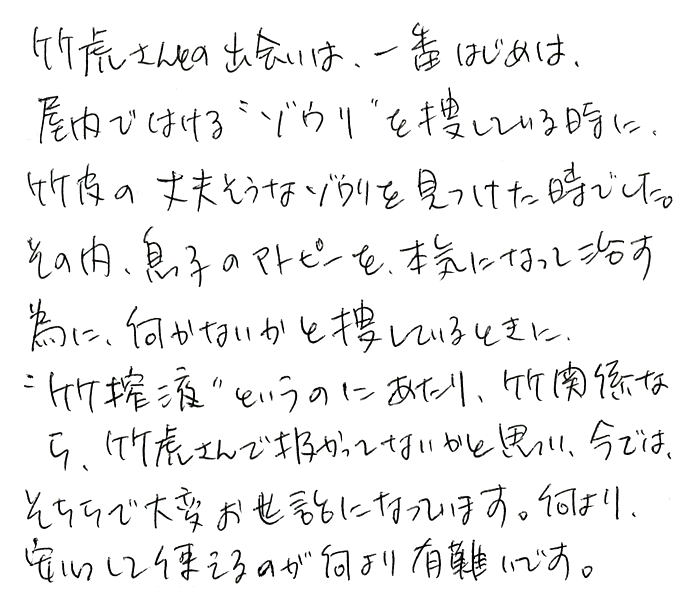 竹虎さんとの出会いは、一番はじめは、
屋内ではける〝ゾウリ〟を捜している時に、
竹皮の丈夫そうなゾウリを見つけた時でした。
その内、息子のアトピーを、本気になって治す
為に、何かないかと捜しているときに、
〝竹搾液〟というのにあたり、竹関係な
ら、竹虎さんで扱かってないかと思い、今では、
そちらで大変お世話になっています。何より、
安心して使えるのが何より有難いです。